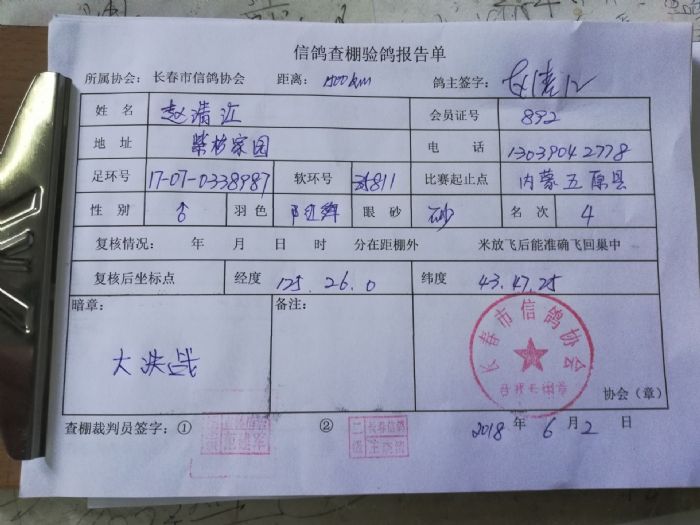 信鸽查棚验鸽报告单
所属协会：长春市信鸽协会 距离：1400km 鸽主签字：
姓 名 赵清江 会员证号 892
地 址 紫杉家园 电 话 13039042778
足环号 17-07-0338987 软环号 811 比赛起止点 内蒙五原县
性 别 ♂ 羽色 眼 砂 砂 名 次 4
复核情况： 年 月 日 时 分在距棚外 米放飞后能准确飞回巢中
复核后坐标点 经度 125.26.0 纬度 43.47.25
暗章： 备注：
大决战
长春市信鸽协会
协会（章）
查棚裁判员签字：① ② 二级 长春信鸽
2018 年 6 月 2 日